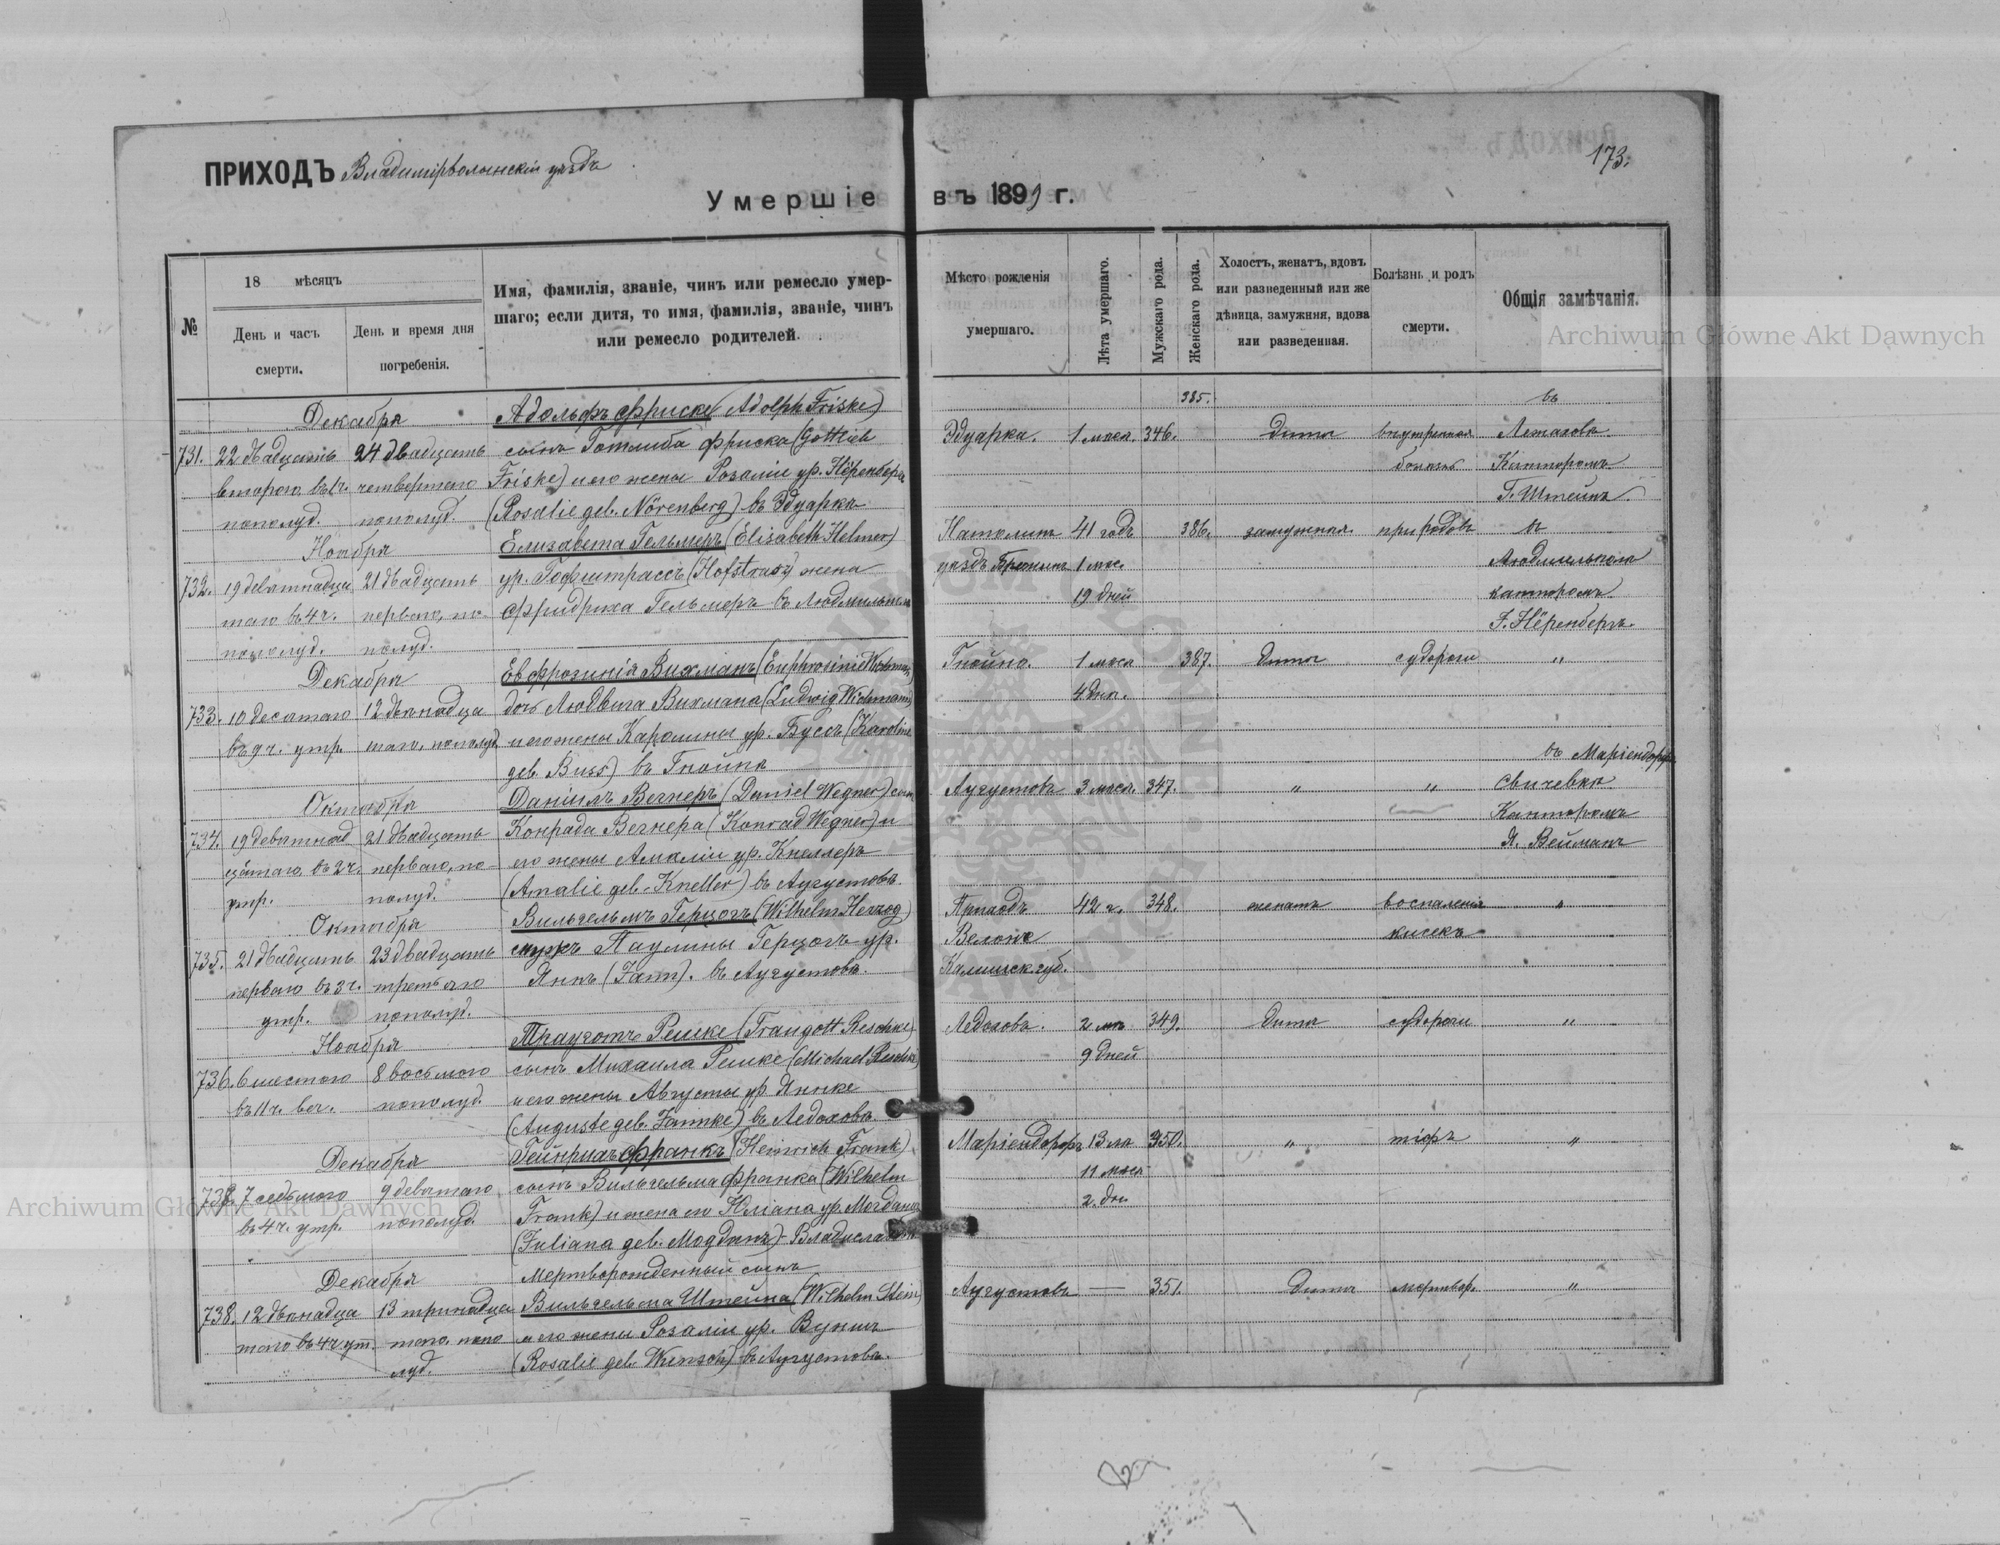 173.
ПРИХОДЪ Владимірволынскій уѣздъ
Умершіе въ 1899 г.
№
18 мѣсяцъ
День и часъ смерти.
День и время дня погребенія.
Имя, фамилія, званіе, чинъ или ремесло умер-
шаго; если дитя, то имя, фамилія, званіе, чинъ
или ремесло родителей.
Мѣсто рожденія
умершаго.
Лѣта умершаго.
Мужскаго рода.
Женскаго рода.
Холостъ, женатъ, вдовъ
или разведенный или же
дѣвица, замужняя, вдова
или разведенная.
Болѣзнь и родъ
смерти.
Общія замѣчанія.
Archiwum Główne Akt Dawnych
Декабря Адольфъ Фриске (Adolph Friske) 385. въ
731. 22 двадцать 24 двадцать сынъ Готлиба Фриска (Gottlieb Эдуарка. 1 мѣся. 346. дитя внутренная
втораго въ ч. четвертаго Friske) и его жены Розаліи ур. Нёренбергъ болезнь Канторомъ
пополуд. пополуд. (Rosalie geb. Nörenberg) въ Эдуарка Г. Штейнъ.
Ноября Елизавета Гельмеръ (Elisabeth Helmer) Натолин 41 годъ 386. замужная при родовъ въ
732. 19 девятнадца 21 двадцать ур. Гофштрассъ (Hofstrass) жена уѣздъ 1 мѣс. Людмильполи
таго въ 4 ч. перваго, по- Фридриха Гельмеръ въ Людмильполи 19 дней канторомъ
пополуд. полуд. F. Нёренбергъ.
Декабря Евфрозинія Вихманъ (Euphrosinie Wichmann) Гнойно. 1 мѣся 387. дитя судороги "
733. 10 десятаго 12 двѣнадца дочь Людвига Вихмана (Ludwig Wichmann) 4 дня.
въ 9 ч. утр. таго, пополуд. и его жены Каролины ур. Буссъ (Karoline
geb. Buss) въ Гнойна въ Маріендорфъ
Октября Даніилъ Вегнеръ (Daniel Wegner) сынъ Аугустовъ 3 мѣся. 347. " " Свичевка
734. 19 девятнад 21 двадцать Конрада Вегнера (Konrad Wegner) и Канторомъ
цатаго въ 2 ч. перваго, по- его жены Амаліи ур. Кнеллеръ Я. Вейманъ
утр. полуд. (Amalie geb. Kneller) въ Аугустовъ.
Октября Вильгельмъ Герцогъ (Wilhelm Herzog) 42 г. 348. женатъ воспаленія "
735. 21 двадцать 23 двадцать мужъ Паулины Герцогъ ур. кисекъ
перваго въ 3 ч. третьяго Яннъ (Jann). въ Аугустовъ. Калишск. губ.
утр. пополуд.
Ноября Трауготъ Решке (Traugott Reschke) Ледоховъ. 2 мѣ 349. дитя судороги "
736. 6 шестого 8 восьмого сынъ Михаила Решке (Michael Reschke) 9 дней
въ 11 ч. веч. пополуд. и его жены Августы ур Яннке
(Auguste geb. Jannke) въ Ледоховъ.
Декабря Гейнрихъ Франкъ (Heinrich Frank) Маріендорфъ 13 лѣ 350. " тіфъ "
738. 7 седьмого 9 девятаго сынъ Вильгельма Франка (Wilhelm 11 мѣся
въ 4 ч. утр. пополуд. Frank) и жена его Юліана ур. Могдана 2 дн.
(Juliana geb. Могданъ)
Archiwum Główne Akt Dawnych
Декабря Мертворожденный сынъ
738. 12 двѣнадца 13 тринадца Вильгельма Штейна (Wilhelm Stein) Аугустовъ — 351. дитя мертвор. "
таго въ 4 ч ут. таго, попо и его жены Розаліи ур. Вуншъ
луд. (Rosalie geb. Wunsch) въ Аугустовъ.